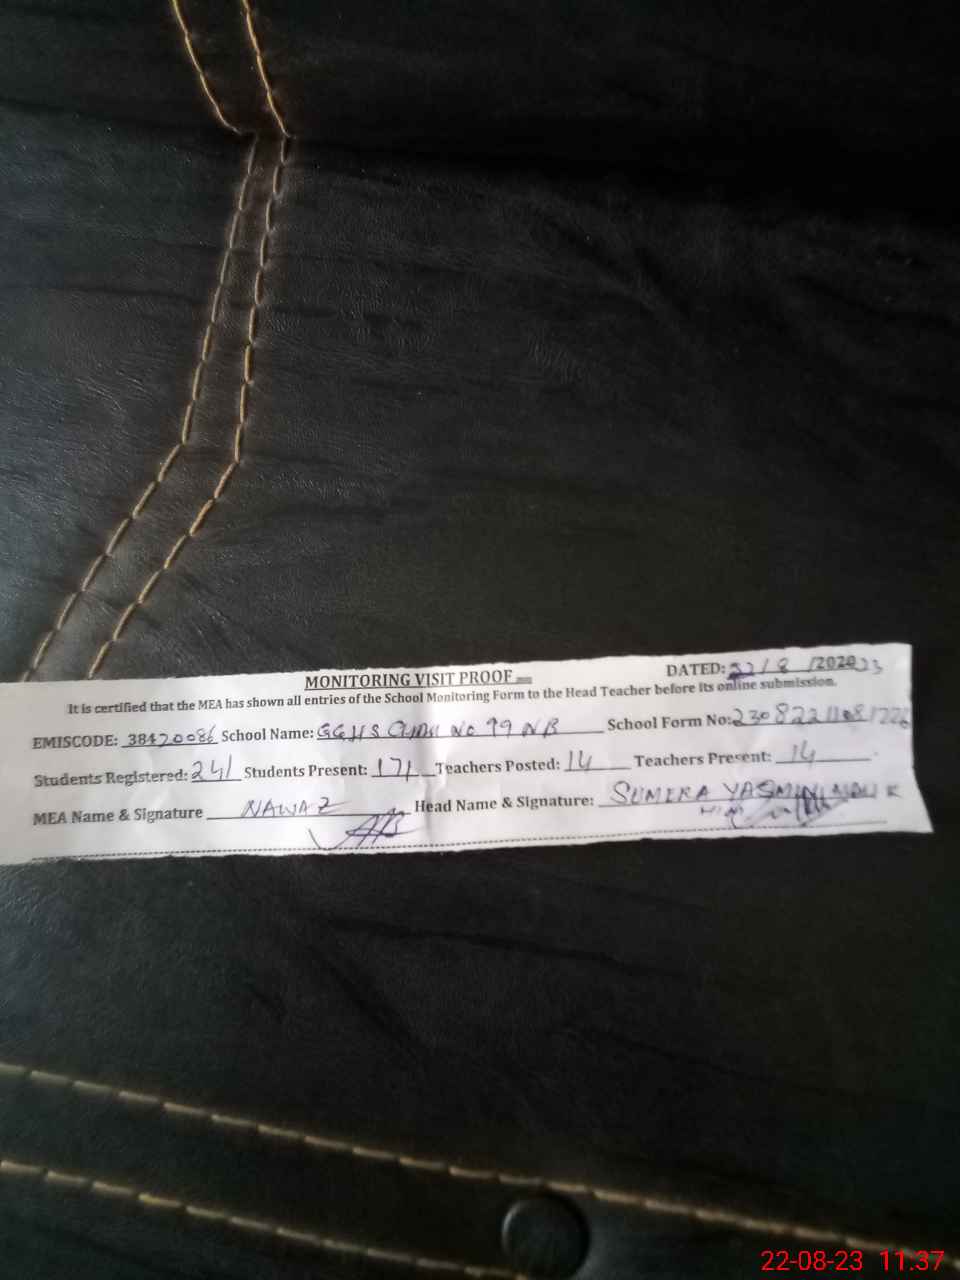 MONITORING VISIT PROOF
DATED: 22/8/2020 23
It is certified that the MEA has shown all entries of the School Monitoring Form to the Head Teacher before its online submission.
EMISCODE: 38420086 School Name: GGHS CHAK No 99 NB School Form No:
Students Registered: 241 Students Present: 171 Teachers Posted: 14 Teachers Present: 14
MEA Name & Signature NAWAZ Head Name & Signature: SUMERA YASMIN
22-08-23 11:37